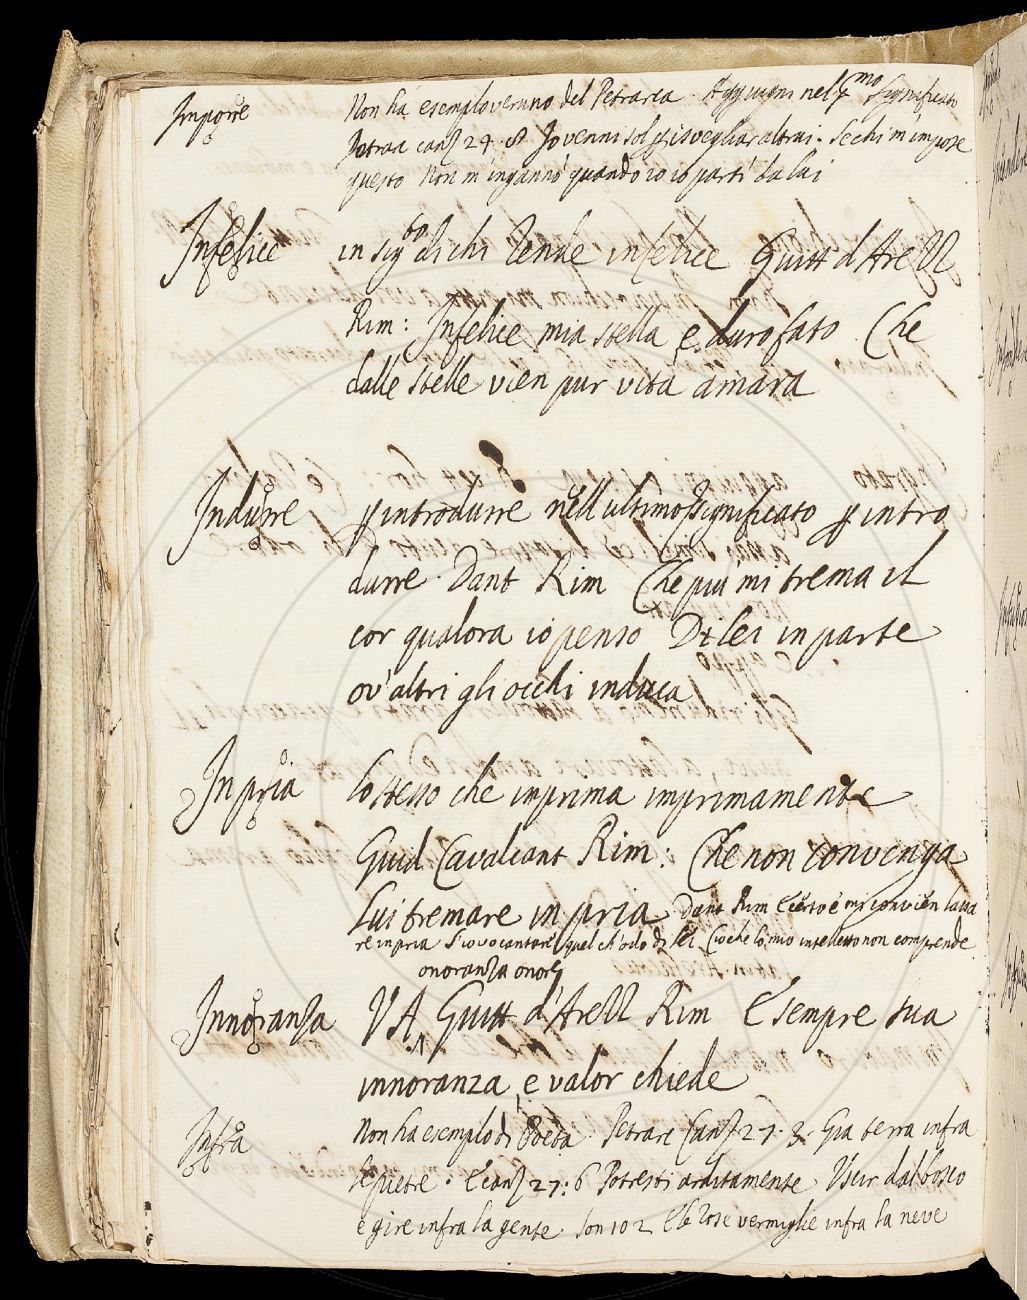 Imporre Non ha esempio veruno del Petrarca. Aggiugni nel 4mo significato
Petrar canz 24. 8 Jo venni sol per isvegliar altrui. Se chi m'impose
questo Non m'ingannò quand'io parti' da lui
Infelice in sigto di chi rende infelice Guitt d'Arezz
Rim: Infelice mia stella e duro fato Che
dalle stelle vien pur vita amara
Indurre per introdurre nell'ultimo significato per intro
durre. Dant Rim Che più mi trema il
cor qualora io penso Di lei in parte
ov'altri gli occhi induca
In pria lo stesso che in prima imprimamente
Guid Cavalcant Rim: Che non convenga
Lui tremare in pria Dant Rim E certo è mi convien lascia
re in pria S'io vo cantar quel ch'odo di lei Cioche lo mio intelletto non comprende
onoranza onore
Innoranza V A Guitt d'Arezz Rim E sempre sua
innoranza, e valor chiede
Infra Non ha esemplo di Poeta. Petrarc Canz 27. 3. Gia terra infra
le pietre. E canz 27: 6 Potresti arditamente Uscir dal bosco
e gire infra la gente Son 102 E le rose vermiglie infra la neve